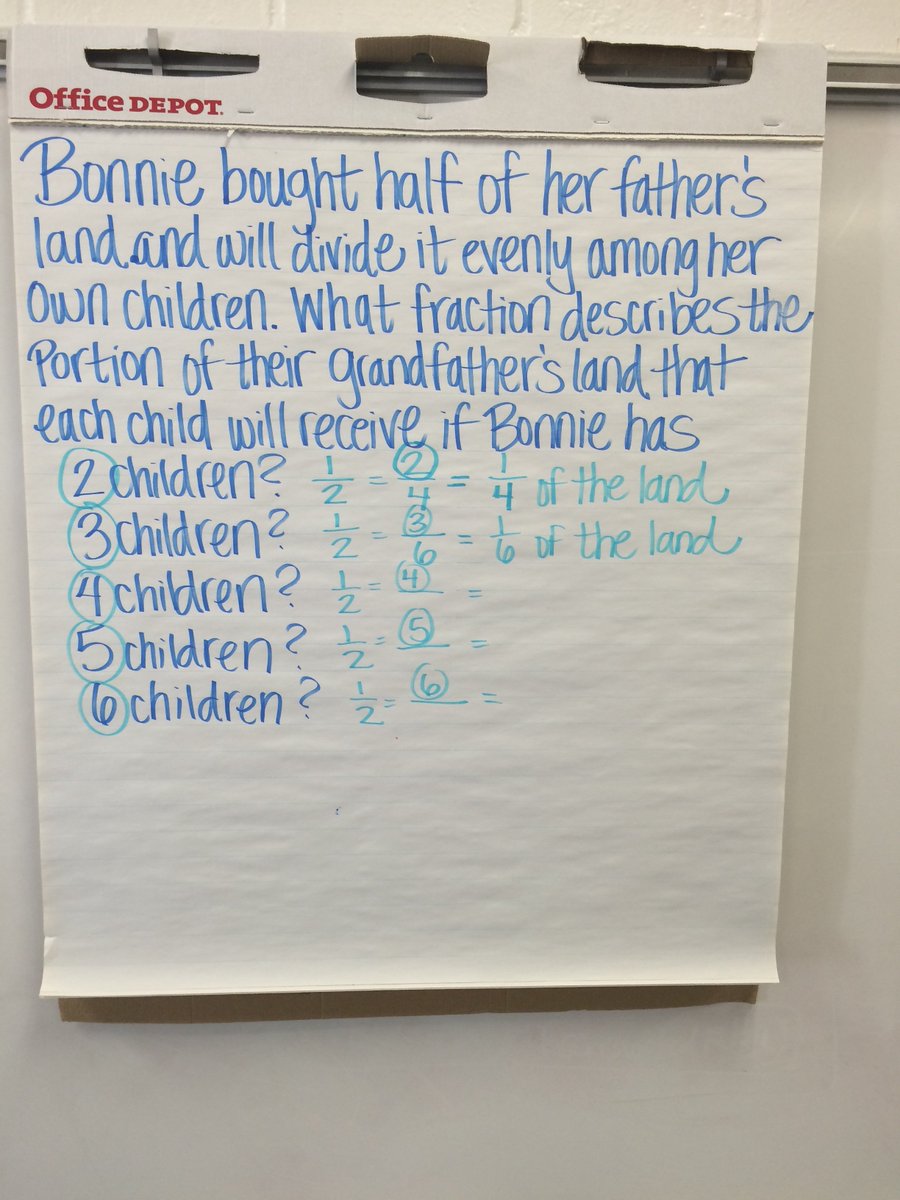 Office DEPOT.
Bonnie bought half of her father's
land and will divide it evenly among her
own children. What fraction describes the
Portion of their grandfather's land that
each child will receive if Bonnie has
2 children? 1/2 = 2/4 = 1/4 of the land
3 children? 1/2 = 3/6 = 1/6 of the land
4 children? 1/2 = 4/ =
5 children? 1/2 = 5/ =
6 children? 1/2 = 6/ =